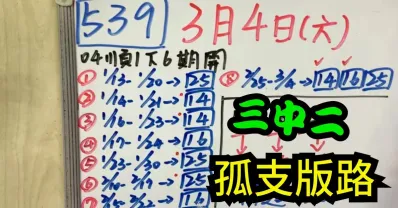 539 3月4日(六)
04順1下6期開
① 1/13-1/20→25 ⑧ 2/25-3/4→14 16 25
② 1/14-1/21→14
③ →14
④ 1/17-1/24→16
⑤ 1/23-1/30→25
⑥ →16
⑦ →25
三中二
孤支版路